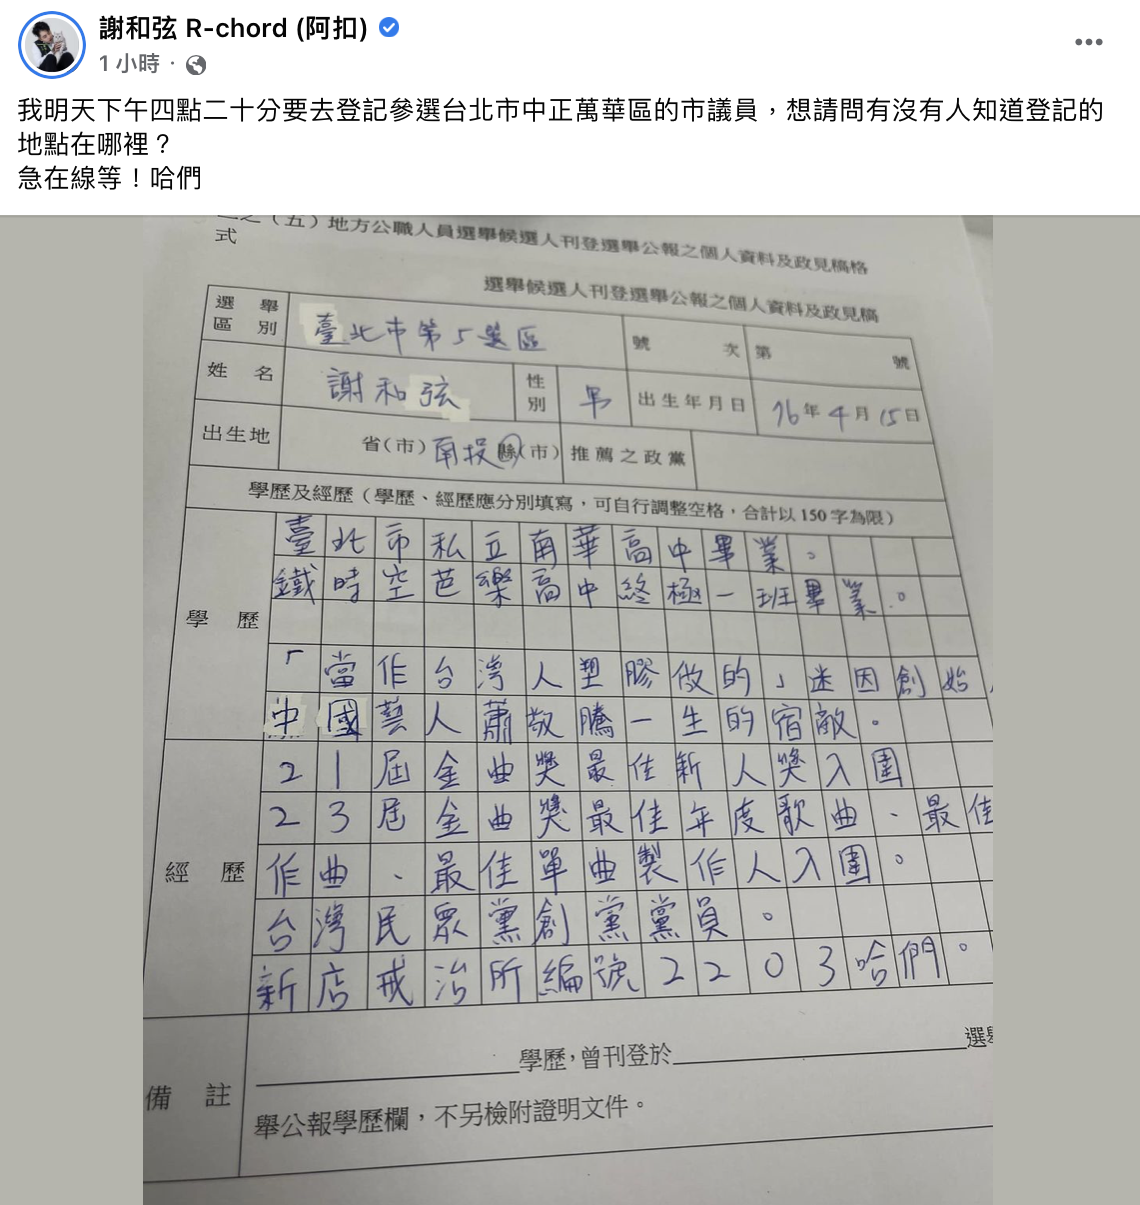 謝和弦 R-chord (阿扣)
1 小時 ·
我明天下午四點二十分要去登記參選台北市中正萬華區的市議員，想請問有沒有人知道登記的
地點在哪裡？
急在線等！哈們
二之（五）地方公職人員選舉候選人刊登選舉公報之個人資料及政見稿格
式
選舉候選人刊登選舉公報之個人資料及政見稿
選舉區別 臺北市第5選區 號次 第 號
姓名 謝和弦 性別 男 出生年月日 76年4月15日
出生地 省(市) 南投縣(市) 推薦之政黨
學歷及經歷（學歷、經歷應分別填寫，可自行調整空格，合計以150字為限）
學歷
臺北市私立南華高中畢業。
鐵時空芭樂高中終極一班畢業。
「當作台灣人塑膠做的」迷因創始
中國藝人蕭敬騰一生的宿敵。
經歷
21屆金曲獎最佳新人獎入圍
23屆金曲獎最佳年度歌曲、最佳
作曲、最佳單曲製作人入圍。
台灣民眾黨創黨黨員。
新店戒治所編號2203哈們。
備註
學歷，曾刊登於 選舉
舉公報學歷欄，不另檢附證明文件。